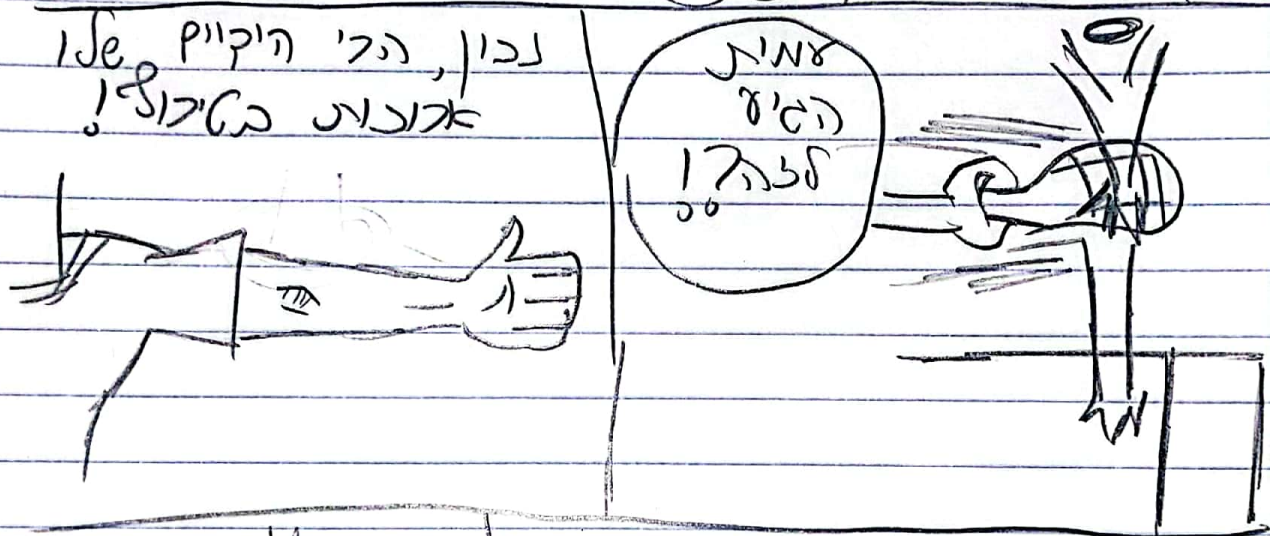 עמית
הגיע
לזה?!
נכון, הרי הידיים שלו
ארוכות בטירוף!